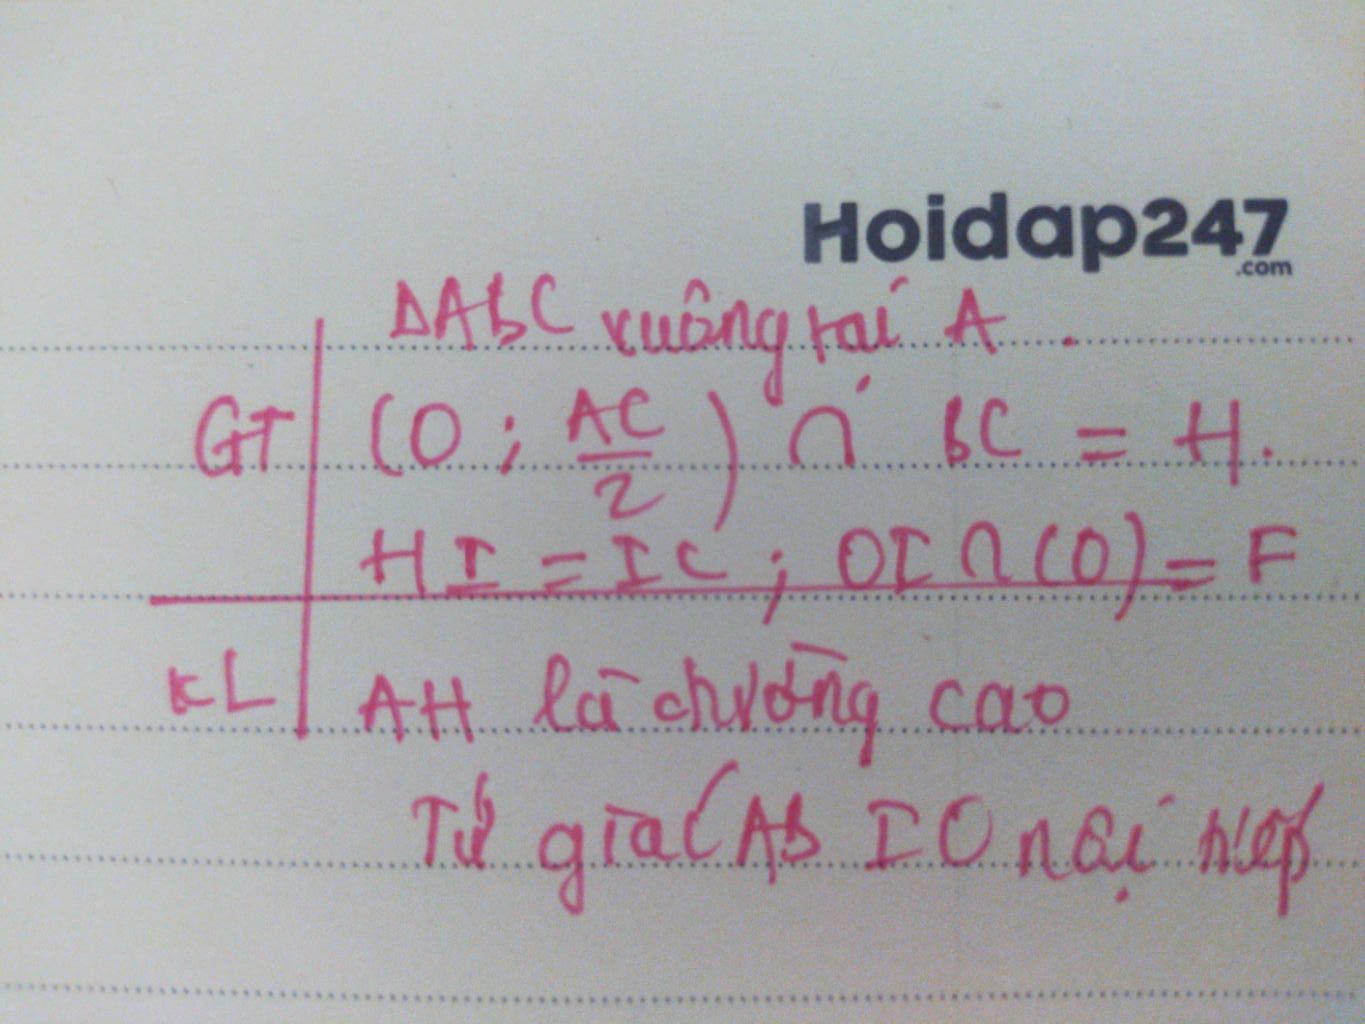 Hoidap247
.com
ΔABC vuông tại A.
GT (O; AC/2) ∩ BC = H.
HI = IC; OI ∩ (O) = F
KL AH là đường cao
Tứ giác ABIO nội tiếp